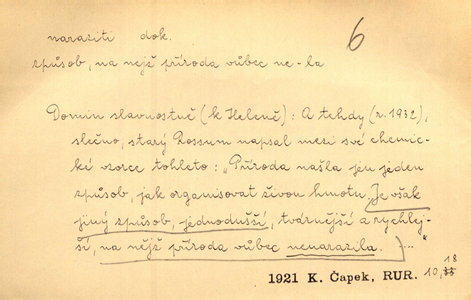 naraziti dok. 6
způsob, na nejž příroda vůbec ne-la
Domin slavnostně (k Heleně): A tehdy (r. 1932),
slečno, starý Rossum napsal mezi své chemic-
ké vzorce tohleto: „Příroda našla jen jeden
způsob, jak organisovat živou hmotu. Je však
jiný způsob, jednodušší, tvárnější a rychlej-
ší, na nějž příroda vůbec nenarazila. ..."
1921 K. Čapek, RUR. 10,
18